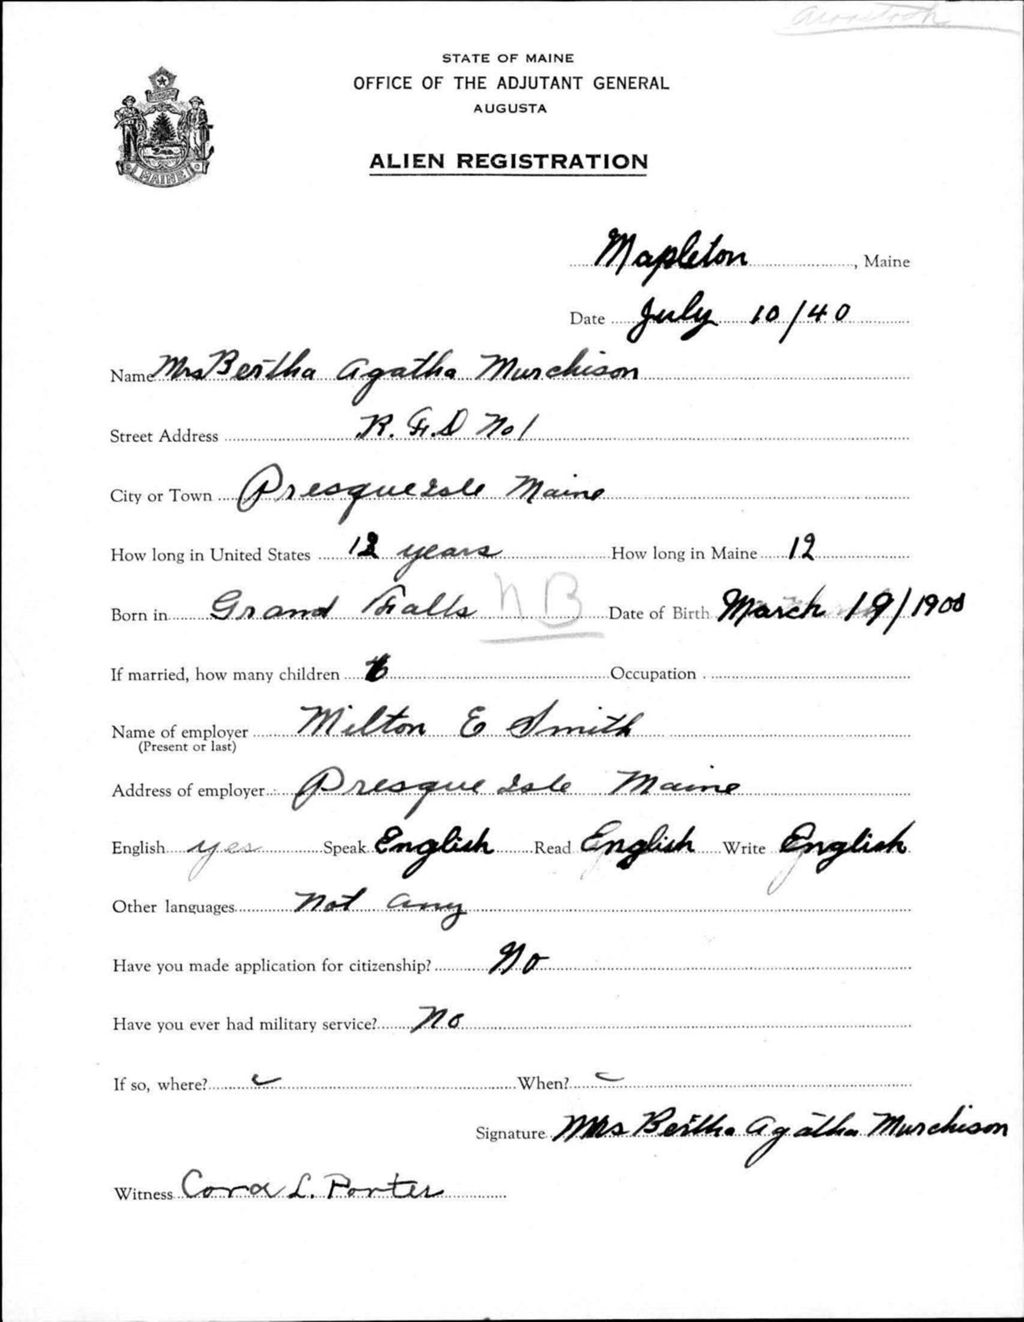 Aroostook
STATE OF MAINE
OFFICE OF THE ADJUTANT GENERAL
AUGUSTA
ALIEN REGISTRATION
MAINE
Mapleton, Maine
Date July 10/40
Name Mrs Bertha Agatha Murchison
Street Address R.F.D No 1
City or Town Presque Isle Maine
How long in United States 12 years How long in Maine 12
Born in Grand Falls NB Date of Birth March 19/1900
If married, how many children 6 Occupation
Name of employer Milton E Smith
(Present or last)
Address of employer Presque Isle Maine
English yes Speak English Read English Write English
Other languages Not any
Have you made application for citizenship? No
Have you ever had military service? No
If so, where? When?
Signature Mrs Bertha Agatha Murchison
Witness Cora L. Porter